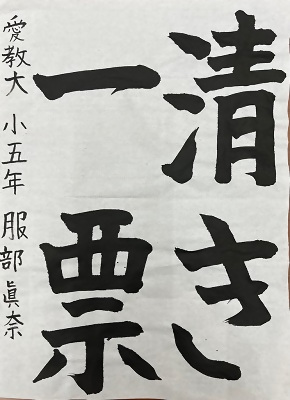 清き
一票
愛教大 小五年 服部眞奈